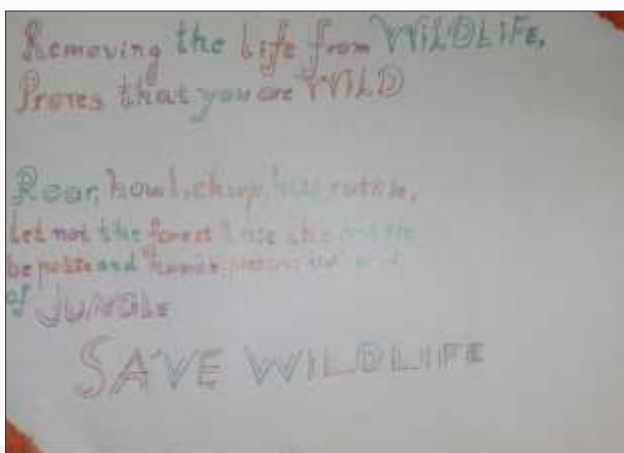 Removing the Life from WILDLIFE,
Proves that you are WILD
Roar, howl, chirp, hiss, rattle,
Let not the forest lose the
be polite and humble, preserve the
of JUNGLE
SAVE WILDLIFE